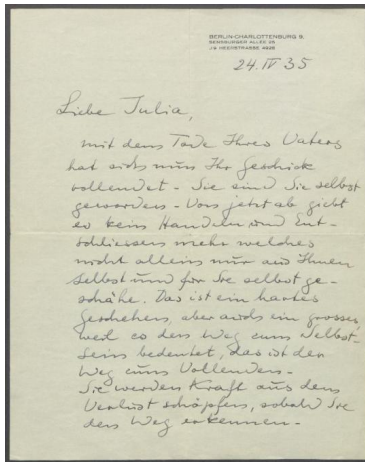 BERLIN-CHARLOTTENBURG 9,
SENSBURGER ALLEE 26
J 9 HEERSTRASSE 4928
24. IV 35
Liebe Julia,
mit dem Tode Ihres Vaters
hat sich nun Ihr Geschick
vollendet - Sie sind Sie selbst
geworden - Von jetzt ab giebt
es kein Handeln und Ent-
schliessen mehr welches
nicht allein nur aus Ihnen
selbst und für Sie selbst ge-
schähe. Das ist ein hartes
Geschehen, aber auch ein grosses
weil es den Weg zum Selbst-
sein bedeutet, das ist der
Weg zum Vollenden -
Sie werden Kraft aus dem
Verlust schöpfen, sobald Sie
den Weg erkennen -